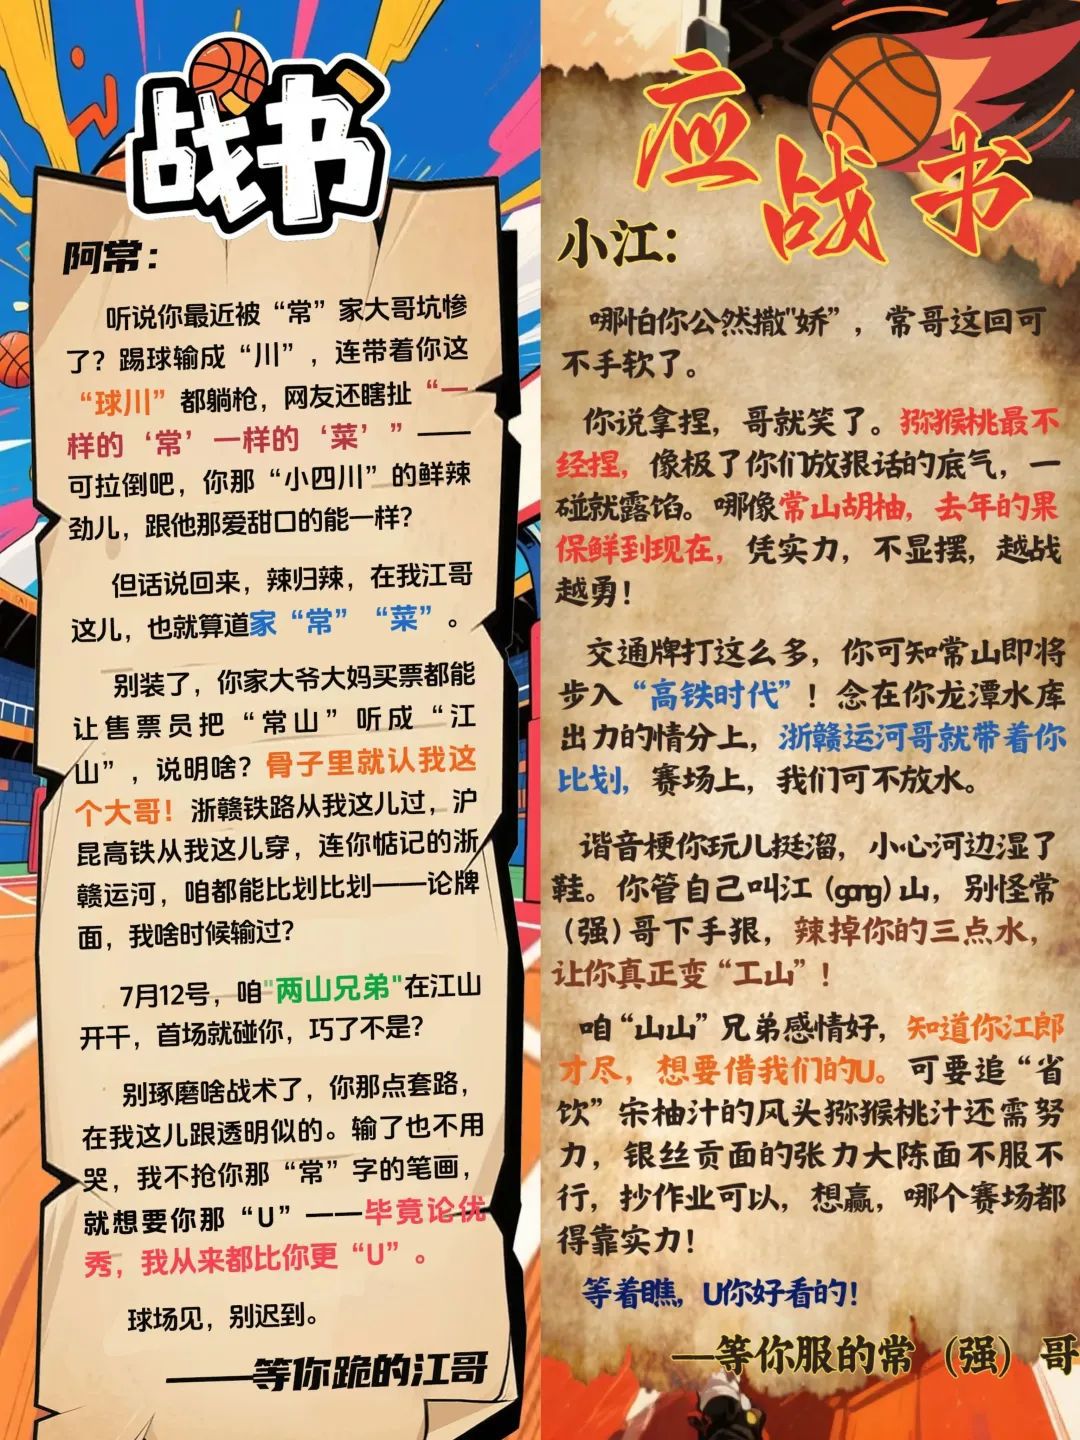 战书
阿常：
听说你最近被“常”家大哥坑惨
了？踢球输成“川”，连带着你这
“球川”都躺枪，网友还瞎扯“一
样的‘常’一样的‘菜’”——
可拉倒吧，你那“小四川”的鲜辣
劲儿，跟他那爱甜口的能一样？
但话说回来，辣归辣，在我江哥
这儿，也就算道家“常”“菜”。
别装了，你家大爷大妈买票都能
让售票员把“常山”听成“江
山”，说明啥？骨子里就认我这
个大哥！浙赣铁路从我这儿过，沪
昆高铁从我这儿穿，连你惦记的浙
赣运河，咱都能比划比划——论牌
面，我啥时候输过？
7月12号，咱"两山兄弟"在江山
开干，首场就碰你，巧了不是？
别琢磨啥战术了，你那点套路，
在我这儿跟透明似的。输了也不用
哭，我不抢你那“常”字的笔画，
就想要你那“U”——毕竟论优
秀，我从来都比你更“U”。
球场见，别迟到。
——等你跪的江哥
应战书
小江：
哪怕你公然撒"娇”，常哥这回可
不手软了。
你说拿捏，哥就笑了。猕猴桃最不
经捏，像极了你们放狠话的底气，一
碰就露馅。哪像常山胡柚，去年的果
保鲜到现在，凭实力，不显摆，越战
越勇！
交通牌打这么多，你可知常山即将
步入“高铁时代”！念在你龙潭水库
出力的情分上，浙赣运河哥就带着你
比划，赛场上，我们可不放水。
谐音梗你玩儿挺溜，小心河边湿了
鞋。你管自己叫江（gang）山，别怪常
（强）哥下手狠，辣掉你的三点水，
让你真正变“工山”！
咱“山山”兄弟感情好，知道你江郎
才尽，想要借我们的U。可要追“省
饮”宋柚汁的风头猕猴桃汁还需努
力，银丝贡面的张力大陈面不服不
行，抄作业可以，想赢，哪个赛场都
得靠实力！
等着瞧，U你好看的！
—等你服的常（强）哥